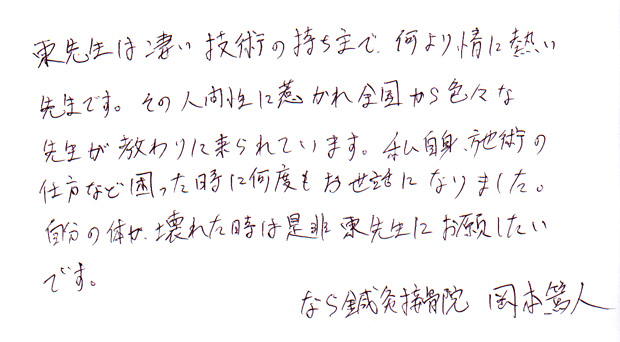 東先生は凄い技術の持ち主で、何より情に熱い
先生です。その人間性に惹かれ全国から色々な
先生が教わりに来られています。私自身、施術の
仕方など困った時に何度もお世話になりました。
自分の体が、壊れた時は是非東先生にお願したい
です。
なら鍼灸接骨院 岡本篤人